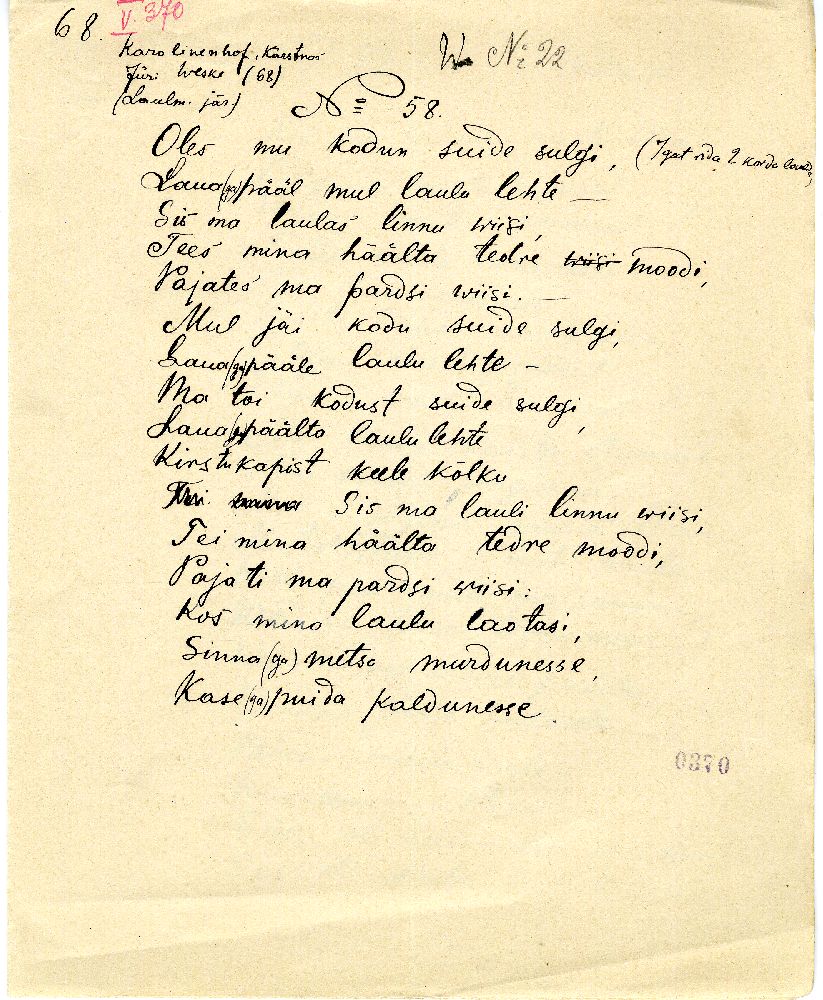 68. V. 370
Karolinenhof, Karstnas
Jüri Weske (68)
(Laulm. järj)
W № 22
№ 58.
Oles mu kodun suide sulgi, (Igat rida 2 korda laulda)
Laua(ga)pääl mul laulu lehte —
Sis ma laulas linnu wiisi,
Tees mina häälta tedre wiisi moodi,
Pajates ma pardsi wiisi. —
Mul jäi kodu suide sulgi,
Laua(ga)pääle laulu lehte —
Ma toi kodust suide sulgi,
Laua(ga)päälta laulu lehte
Kirstukapist keele kõlku
Sis ma lauli linnu wiisi,
Tei mina häälta tedre moodi,
Pajati ma pardsi wiisi:
Kos mina laulu laotasi,
Sinna(ga) metsa murdunesse,
Kase(ga)puida kaldunesse.
0370